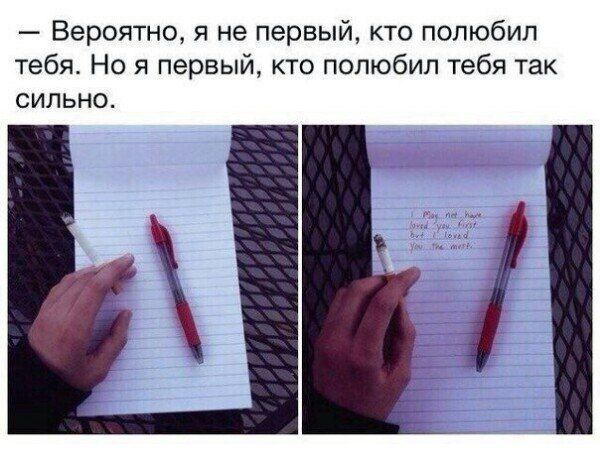 — Вероятно, я не первый, кто полюбил
тебя. Но я первый, кто полюбил тебя так
сильно.
I May not have
loved you first
but I loved
you the most.